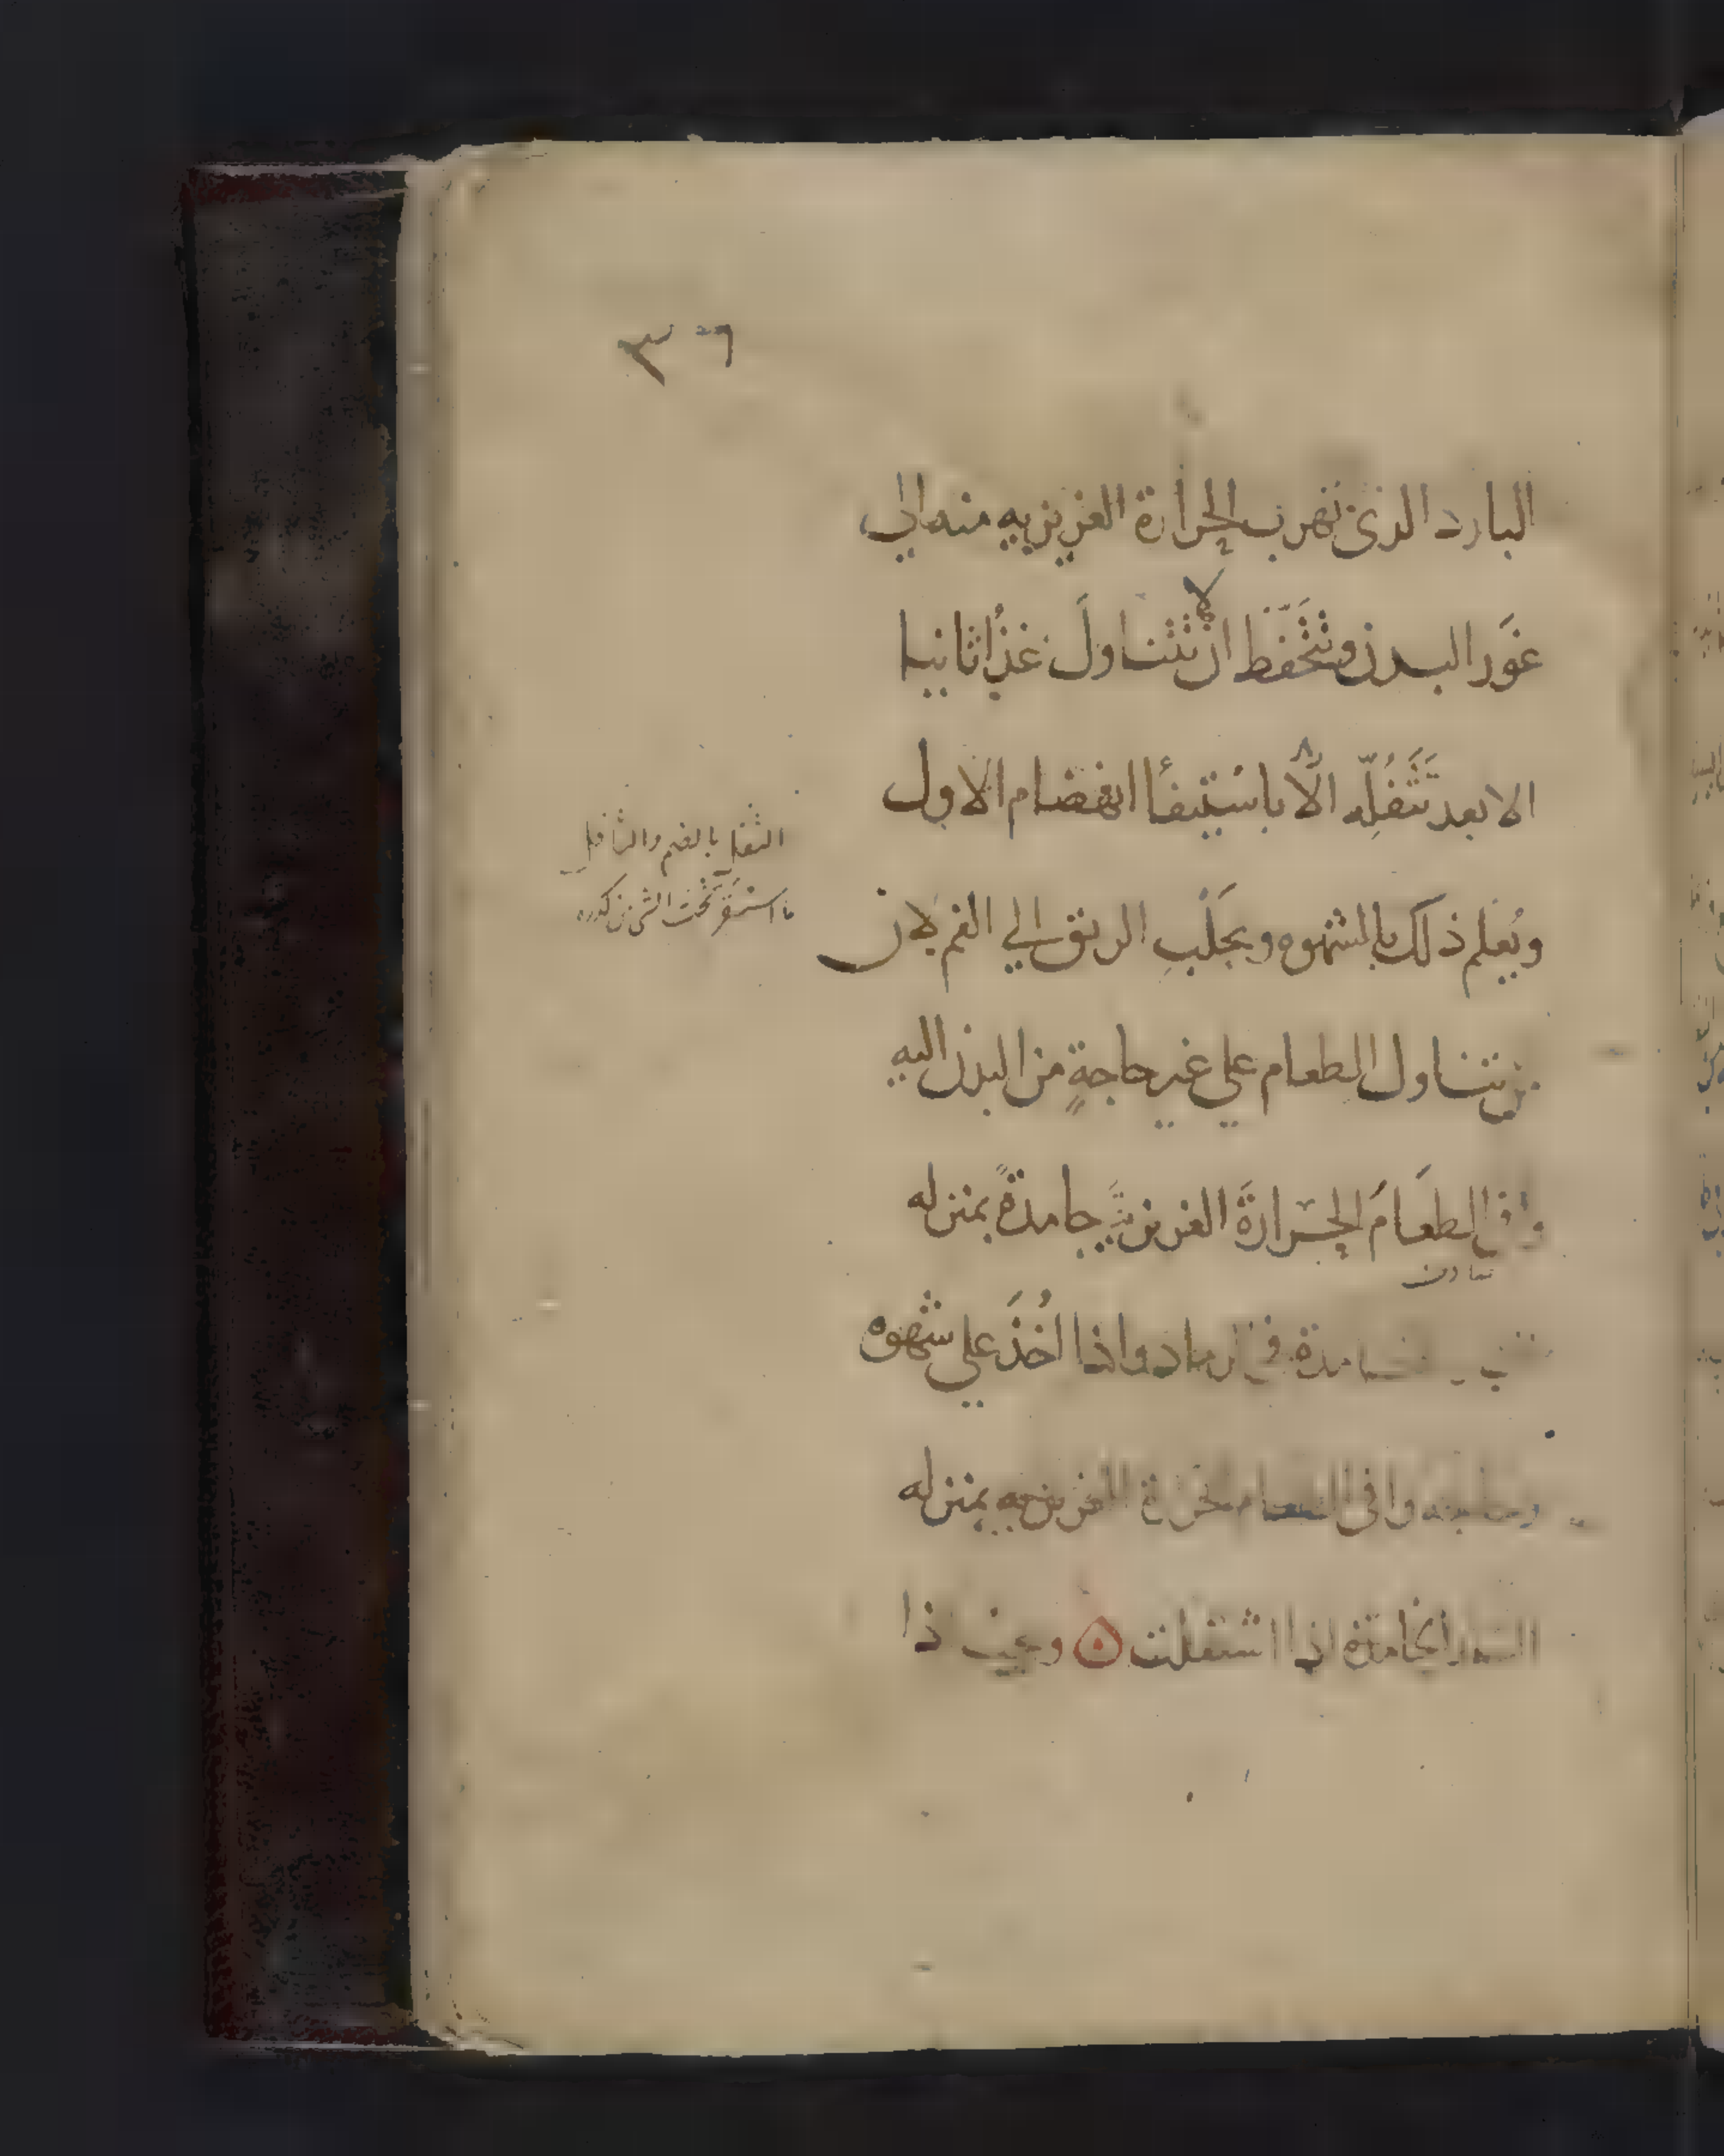 ٣٦
البارد الذى تهرب الحرارة الغريزيه منه الى
غَور البدن وتتحَفّظ ان لا تتناول غذاً ثانيا
الا بعد تَثَفُلِّه الّا باستيفأ انهضام الاول
ويُعلم ذلك بالشهوه وتجَلّبِ الريق الي الفم لان
من تناول الطعام علي غير حاجةٍ من البدن اليه
وافى الطعامَ الحرارةَ الغريزيةَ جامدةً بمنزله
الخامدة في الرماد واذا اُخذَ علي شهوه
وافى الطعام الحرارة الغريزيه بمنزله
النار الخامدة اذا اشتعلت وعجب ذا
الثفل بالضم والثافل
ما استقر تحت الشئ من كدره